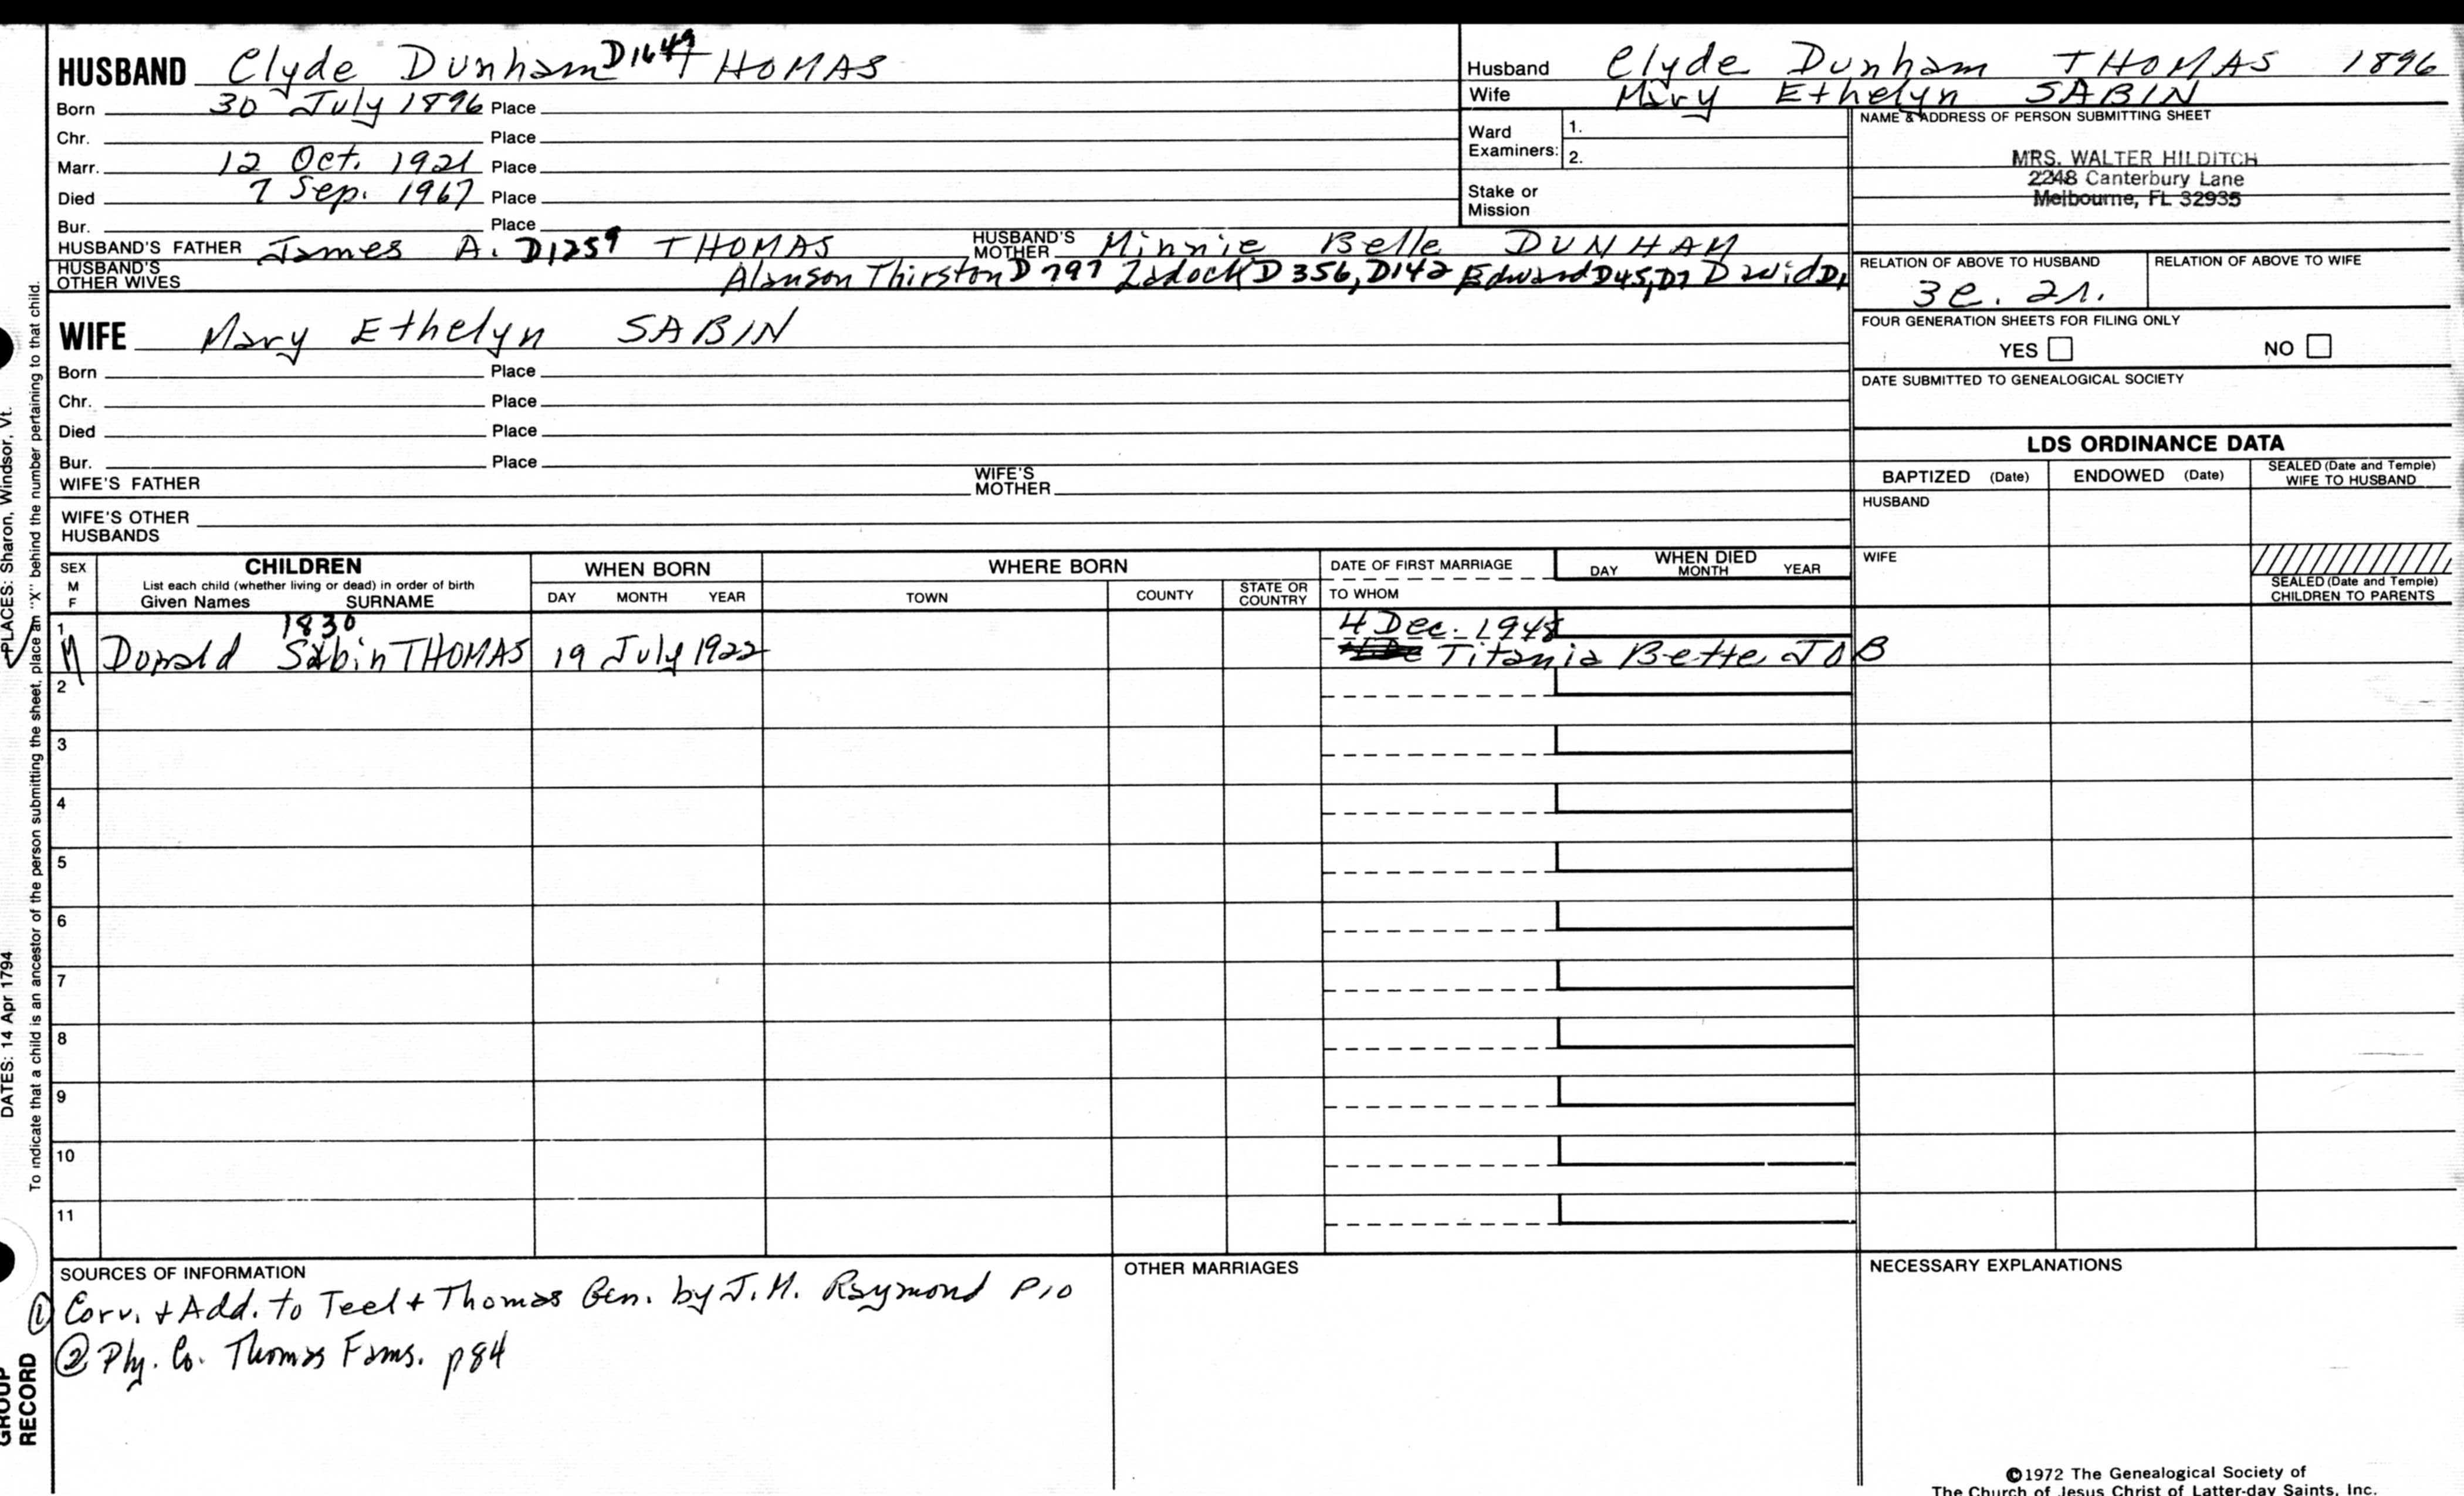 HUSBAND Clyde Dunham D1649 THOMAS
Born 30 July 1896 Place
Chr. Place
Marr. 12 Oct. 1921 Place
Died 7 Sep. 1967 Place
Bur. Place
HUSBAND'S FATHER James A. D1259 THOMAS HUSBAND'S MOTHER Minnie Belle DUNHAM
HUSBAND'S OTHER WIVES Alanson Thirston D797 Zadock D356, D142 Edward D45, D7 David D1
WIFE Mary Ethelyn SABIN
Born Place
Chr. Place
Died Place
Bur. Place
WIFE'S FATHER WIFE'S MOTHER
WIFE'S OTHER HUSBANDS
Husband Clyde Dunham THOMAS 1896
Wife Mary Ethelyn SABIN
Ward Examiners: 1.
2.
Stake or Mission
NAME & ADDRESS OF PERSON SUBMITTING SHEET
MRS. WALTER HILDITCH
2248 Canterbury Lane
Melbourne, FL 32935
RELATION OF ABOVE TO HUSBAND RELATION OF ABOVE TO WIFE
3c. 2r.
FOUR GENERATION SHEETS FOR FILING ONLY
YES NO
DATE SUBMITTED TO GENEALOGICAL SOCIETY
LDS ORDINANCE DATA
BAPTIZED (Date) ENDOWED (Date) SEALED (Date and Temple) WIFE TO HUSBAND
HUSBAND
WIFE
SEALED (Date and Temple) CHILDREN TO PARENTS
SEX M F CHILDREN WHEN BORN WHERE BORN DATE OF FIRST MARRIAGE WHEN DIED
List each child (whether living or dead) in order of birth
Given Names SURNAME DAY MONTH YEAR TOWN COUNTY STATE OR COUNTRY TO WHOM DAY MONTH YEAR
1 1830 4 Dec. 1948
M Donald Sabin THOMAS 19 July 1922 Titania Bette JOB
2
3
4
5
6
7
8
9
10
11
SOURCES OF INFORMATION
① Corr. + Add. to Teel + Thomas Gen. by J.H. Raymond p10
② Ply. Co. Thomas Fams. p84
OTHER MARRIAGES
NECESSARY EXPLANATIONS
©1972 The Genealogical Society of
The Church of Jesus Christ of Latter-day Saints, Inc.
PLACES: Sharon, Windsor, Vt.
DATES: 14 Apr 1794
To indicate that a child is an ancestor of the person submitting the sheet, place an "X" behind the number pertaining to that child.
GROUP
RECORD